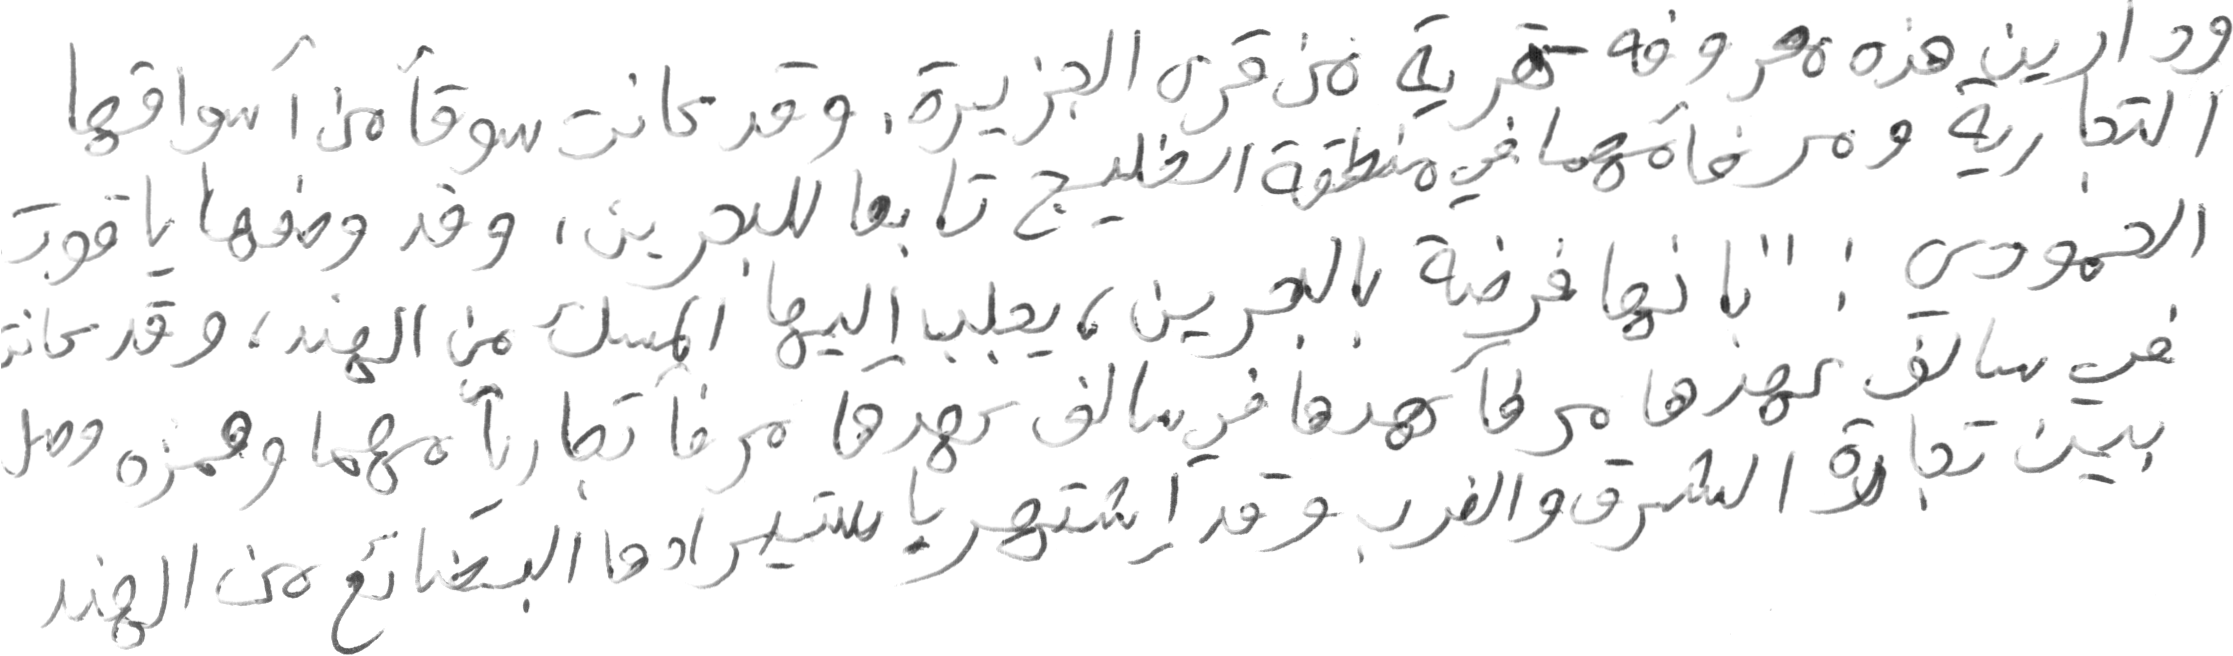 ودارين هذه معروفه كقرية من قرى الجزيرة، وقد كانت سوقاً من أسواقها
التجارية ومرفأ مهما في منطقة الخليج تابعا للبحرين، وقد وصفها ياقوت
الحمودي: "بانها فرضة بالبحرين، يجلب إليها المسك من الهند، وقد كانت
في سالف عهدها مرفأ عهدها في سالف عهدها مرفأ تجارياً مهما وهمزه وصل
بين تجارة الشرق والغرب وقد إشتهر بإستيرادها البضائع من الهند